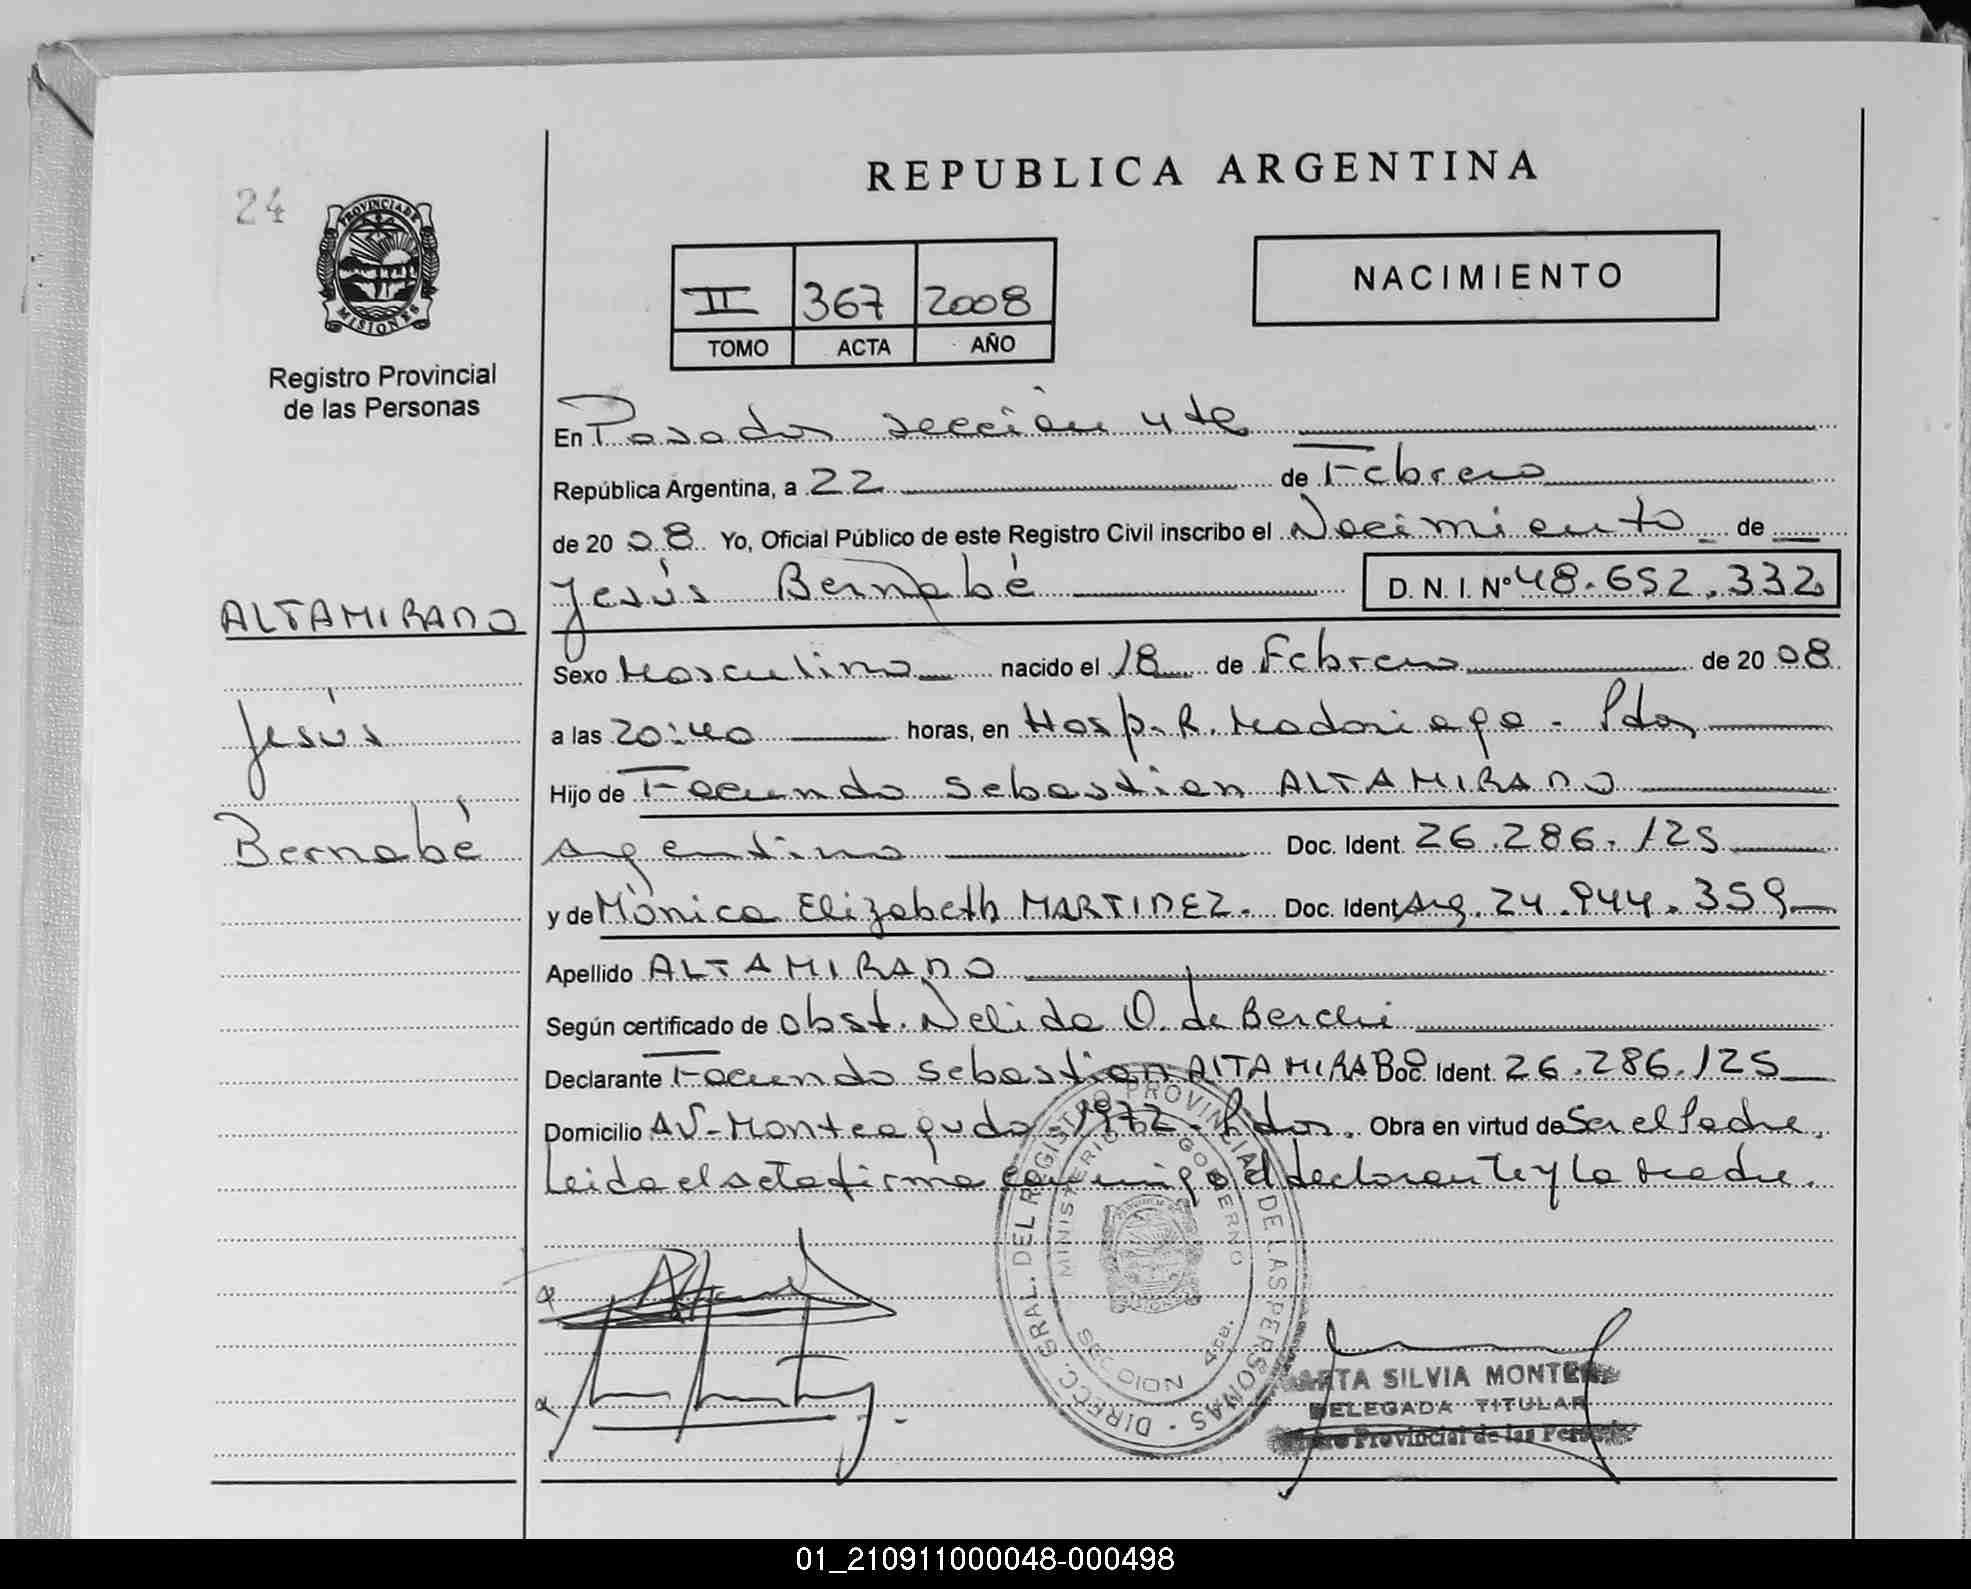 REPUBLICA ARGENTINA
24
PROVINCIA DE
MISIONES
Registro Provincial
de las Personas
II 367 2008
TOMO ACTA AÑO
NACIMIENTO
En Posadas sección 4ta
República Argentina, a 22 de Febrero
de 20 08 Yo, Oficial Público de este Registro Civil inscribo el Nacimiento de
Jesús Bernabé D. N. I. Nº 48.652.332
ALTAMIRANO
Jesús
Bernabé
Sexo Masculino nacido el 18 de Febrero de 20 08
a las 20:40 horas, en Hosp. R. Madariaga - Pdas
Hijo de Facundo Sebastian ALTAMIRANO
Argentino Doc. Ident. 26.286.125
y de Mónica Elizabeth MARTINEZ. Doc. Ident Arg. 24.944.359
Apellido ALTAMIRANO
Según certificado de obst. Nelida O. de Berchi
Declarante Facundo Sebastian ALTAMIRANO Doc. Ident. 26.286.125
Domicilio AV- Monteagudo 1972 - Pdas. Obra en virtud de Ser el Padre.
Leida el acta firma conmigo el declarante y la Madre.
DIRECC. GRAL. DEL REGISTRO PROVINCIAL DE LAS PERSONAS
MINISTERIO DE GOBIERNO
SECCION 4ta.
MARTA SILVIA
DELEGADA TITULAR
Provincial de las
01_210911000048-000498